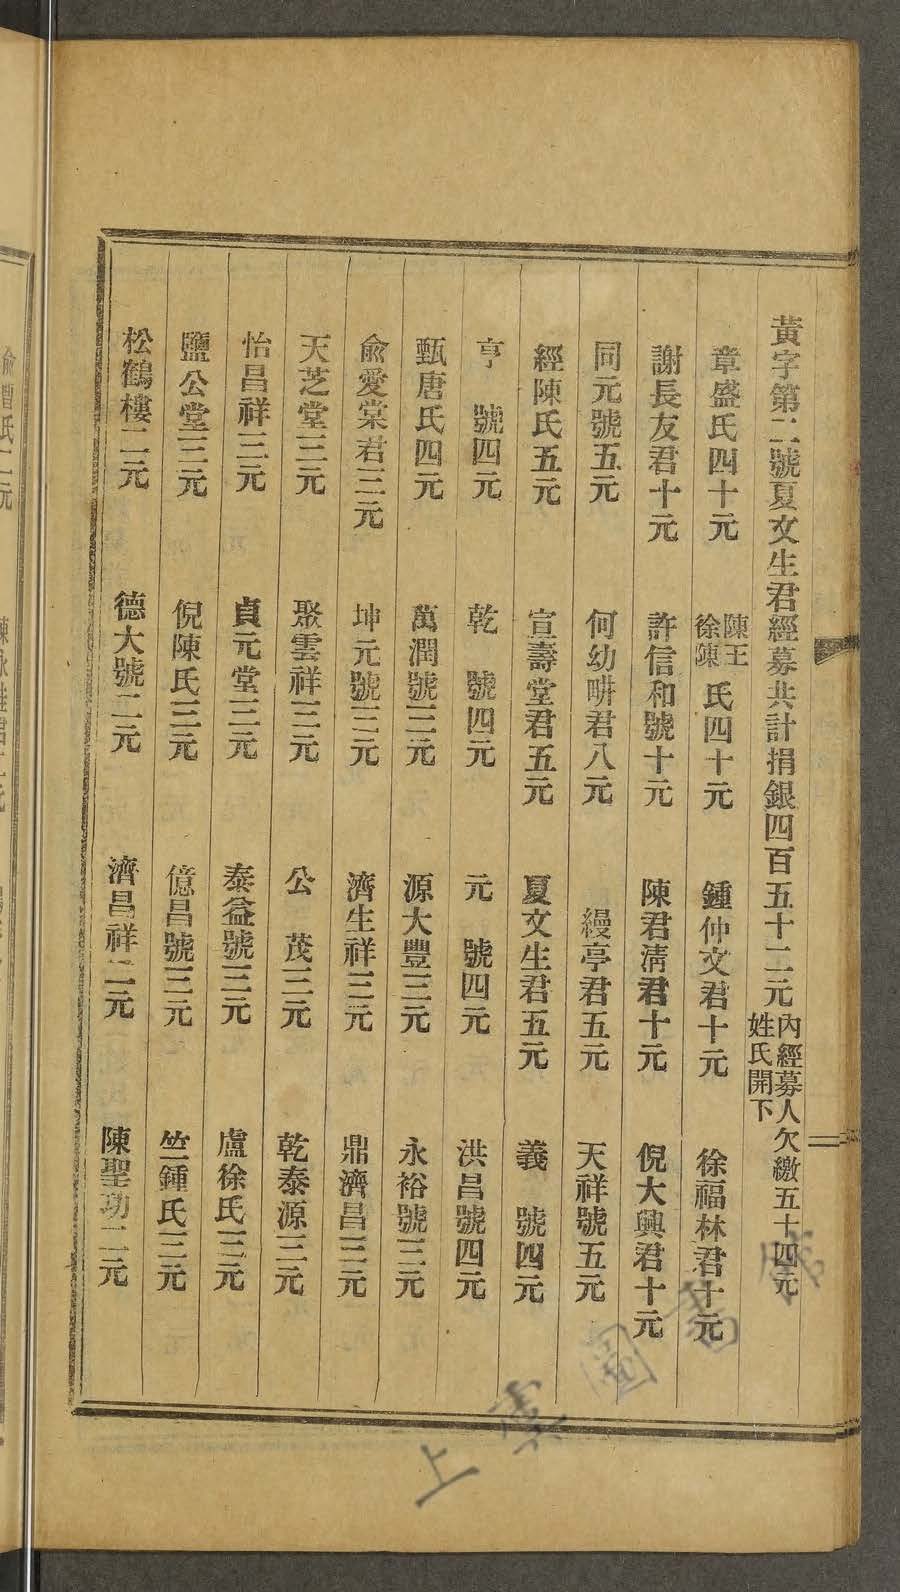 黃字第二號夏文生君經募共計捐銀四百五十二元內經募人欠繳五十四元姓氏開下
章盛氏四十元 陳王徐陳氏四十元 鍾仲文君十元 徐福林君十元
謝長友君十元 許信和號十元 陳君清君十元 倪大興君十元
同元號五元 何幼畊君八元 縵亭君五元 天祥號五元
經陳氏五元 宣壽堂君五元 夏文生君五元 義號四元
亨號四元 乾號四元 元號四元 洪昌號四元
甄唐氏四元 萬潤號三元 源大豐三元 永裕號三元
俞愛棠君三元 坤元號三元 濟生祥三元 鼎濟昌三元
天芝堂三元 聚雲祥三元 公茂三元 乾泰源三元
怡昌祥三元 貞元堂三元 泰益號三元 盧徐氏三元
鹽公堂三元 倪陳氏三元 億昌號三元 竺鍾氏三元
松鶴樓二元 德大號二元 濟昌祥二元 陳聖功二元
上虞圖書館